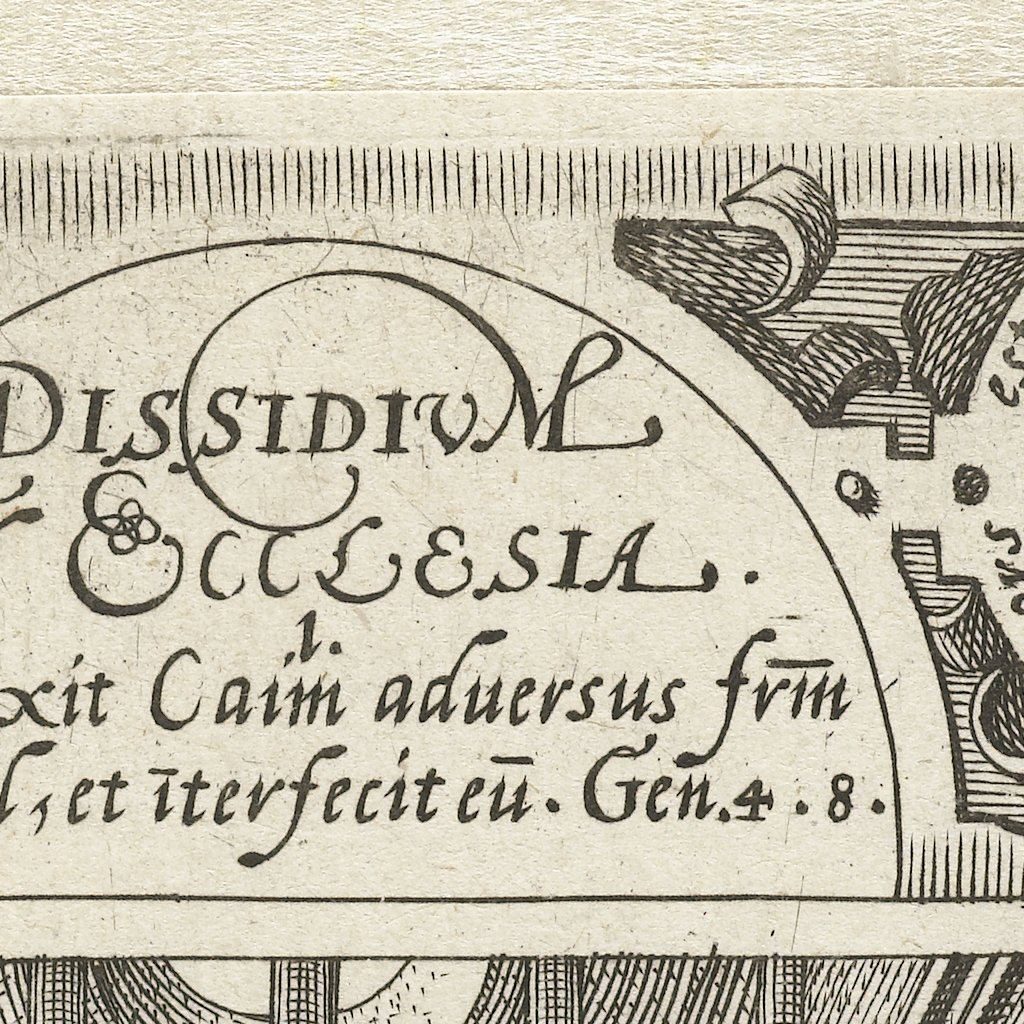 DISSIDIVM
ECCLESIA.
1.
xit Caim aduersus frm̄
l, et īterfecit eū. Gen. 4. 8.